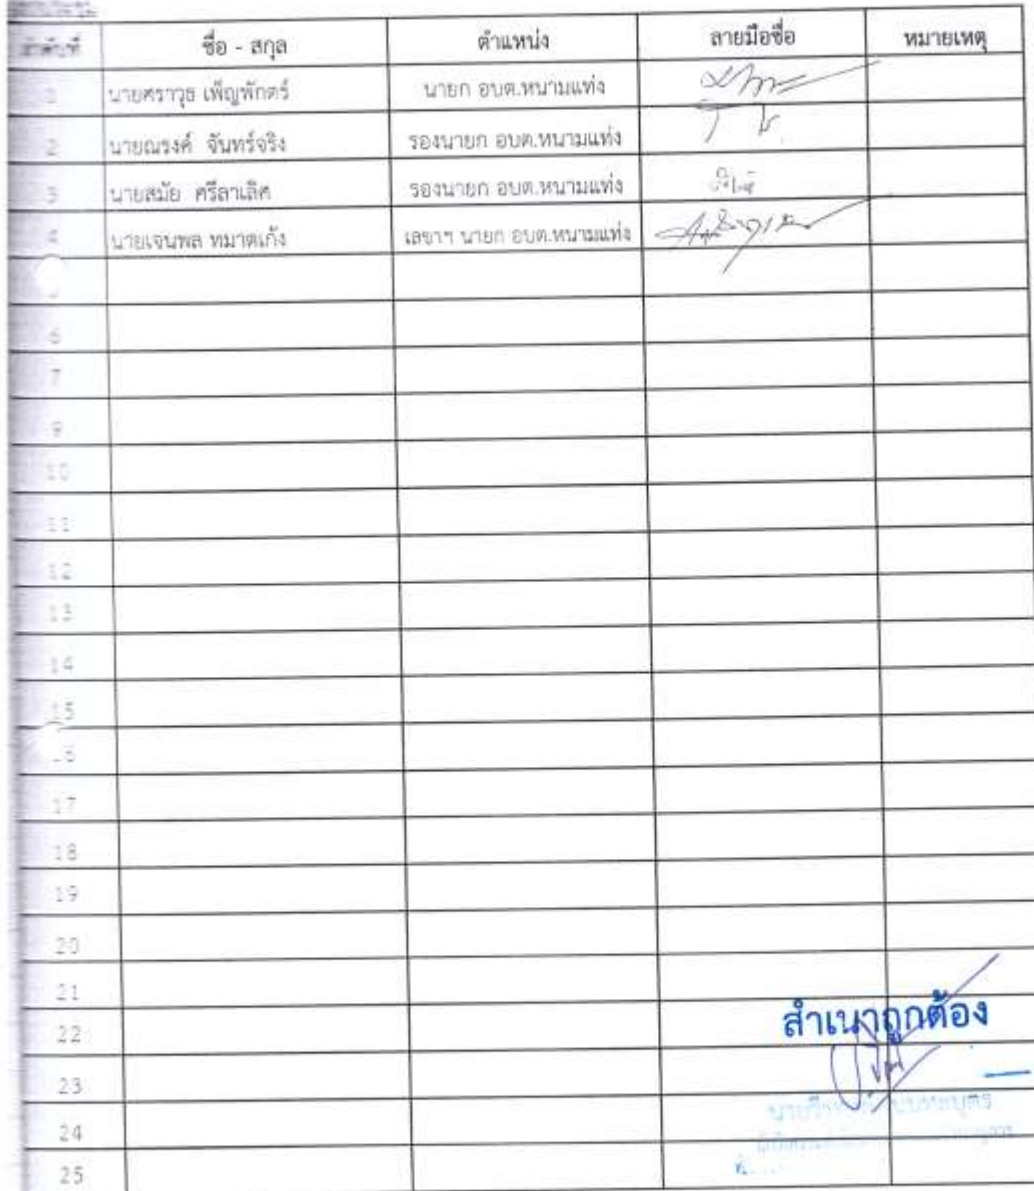 ลำดับที่ ชื่อ - สกุล ตำแหน่ง ลายมือชื่อ หมายเหตุ
1 นายศราวุธ เพ็ญพักตร์ นายก อบต.หนามแท่ง
2 นายณรงค์ จันทร์จริง รองนายก อบต.หนามแท่ง
3 นายสมัย ศรีลาเลิศ รองนายก อบต.หนามแท่ง
4 นายเจนพล ทมาตเก้ง เลขาฯ นายก อบต.หนามแท่ง
6
7
9
10
11
12
13
14
15
16
17
18
19
20
21
22 สำเนาถูกต้อง
23
24
25